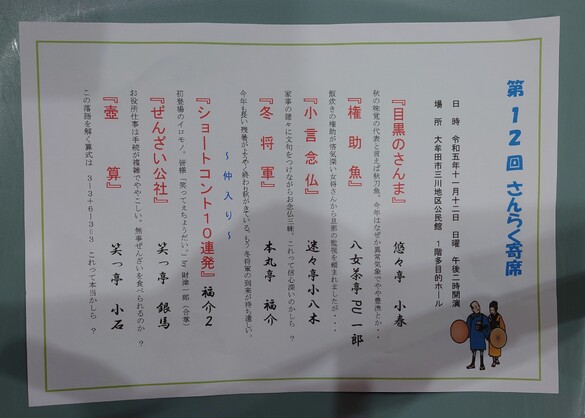 第12回 さんらく寄席
日 時 令和五年十一月十二日 日曜 午後二時開演
場 所 大牟田市三川地区公民館 1階多目的ホール
『目黒のさんま』 悠々亭 小春
秋の味覚の代表と言えば秋刀魚。今年はなぜか異常気象でやや豊漁とか・・
『権助魚』 八女茶亭PU一郎
飯炊きの権助が悋気深い女将さんから旦那の監視を頼まれましたが・・・
『小言念仏』 迷々亭小八木
家事の諸々に文句をつけながらお念仏三昧。これって信心深いのかしら ?
『冬将軍』 本丸亭 福介
今年も長い残暑がようやく終わり秋がきている。もう冬将軍の到来が待ち遠しい。
~ 仲入り ~
『ショートコント10連発』 福介2
初登場のイロモノ。皆様、笑ってえちょうだい。!by 財津一郎(合掌)
『ぜんざい公社』 笑っ亭 銀馬
お役所仕事は手続が複雑でややこしい。無事ぜんざいを食べられるのか ?
『壺算』 笑っ亭 小石
この落語を解く算式は 3-3+6-3=3 これって本当かしら ?